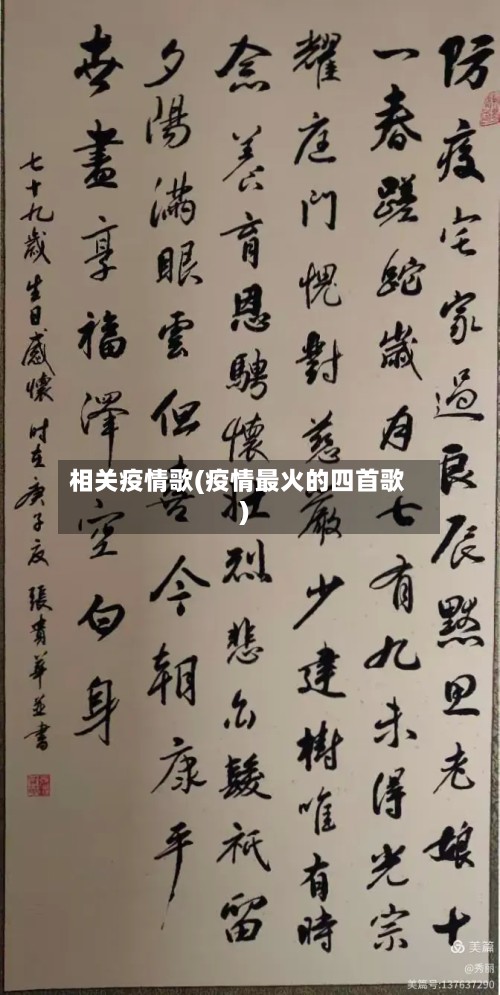 防疫宅家過良辰默思老娘十
一春蹉跎歲月七有九未得光宗
耀庭門愧對慈嚴少建樹唯有時
念養育恩騁懷壯烈悲白髮祇留
夕陽滿眼雲但喜今朝康平
書畫享福澤空白身
七十九歲生日感懷时在庚子夏張貴華並書
相关疫情歌(疫情最火的四首歌
)
美篇
@秀丽
美篇号:137637290